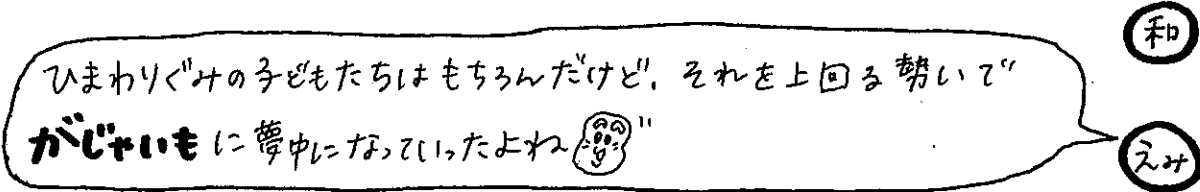 和
ひまわりぐみの子どもたちはもちろんだけど、それを上回る勢いで
がじゃいもに夢中になっていったよね
えみ